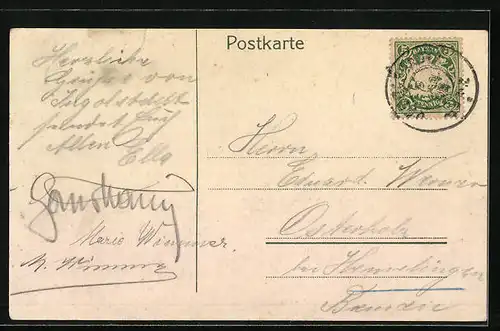 Postkarte
Herzliche
Grüße von
Ingolstadt
sendet Euch
Allen
Ella
Marie Wimmer
M. Wimmer
Herrn
Eduard Werner
Osterholz
bei Hemelingen
Bremen